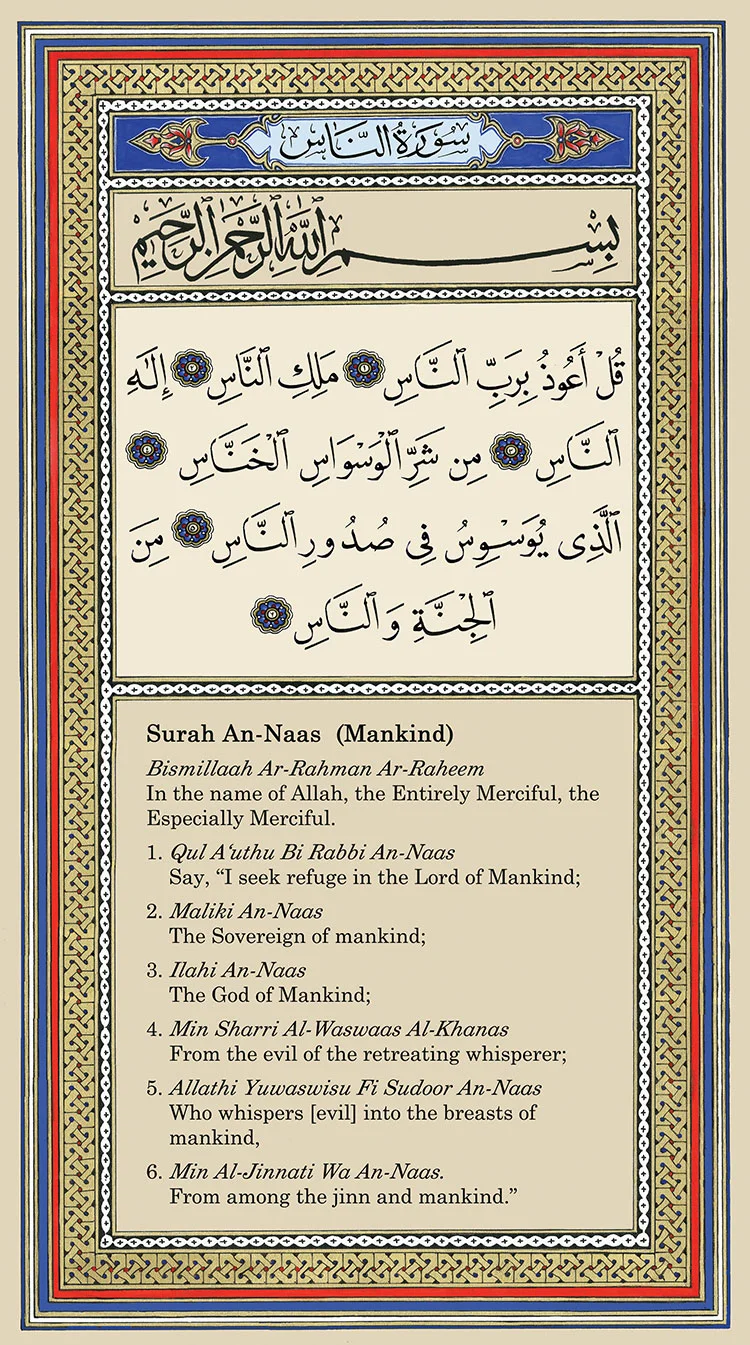 سُورَةُ النَّاسِ
بِسْمِ ٱللَّهِ ٱلرَّحْمَٰنِ ٱلرَّحِيمِ
قُلْ أَعُوذُ بِرَبِّ ٱلنَّاسِ ١ مَلِكِ ٱلنَّاسِ ٢ إِلَٰهِ
ٱلنَّاسِ ٣ مِن شَرِّ ٱلْوَسْوَاسِ ٱلْخَنَّاسِ ٤
ٱلَّذِى يُوَسْوِسُ فِى صُدُورِ ٱلنَّاسِ ٥ مِنَ
ٱلْجِنَّةِ وَٱلنَّاسِ ٦
Surah An-Naas (Mankind)
Bismillaah Ar-Rahman Ar-Raheem
In the name of Allah, the Entirely Merciful, the
Especially Merciful.
1. Qul A‘uthu Bi Rabbi An-Naas
Say, “I seek refuge in the Lord of Mankind;
2. Maliki An-Naas
The Sovereign of mankind;
3. Ilahi An-Naas
The God of Mankind;
4. Min Sharri Al-Waswaas Al-Khanas
From the evil of the retreating whisperer;
5. Allathi Yuwaswisu Fi Sudoor An-Naas
Who whispers [evil] into the breasts of
mankind,
6. Min Al-Jinnati Wa An-Naas.
From among the jinn and mankind.”